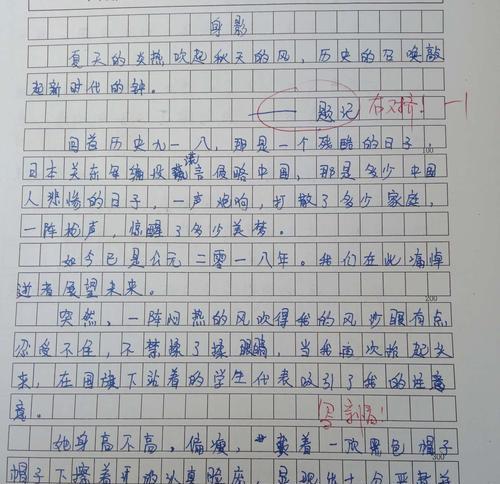 身影
夏天的炎热吹起秋天的风，历史的召唤敲
起新时代的钟。
——题记 右对齐！ -1
回首历史九一八，那是一个残酷的日子，
100
日本关东军编役流言侵略中国，那是多少中国
人悲惨的日子，一声炮响，打散了多少家庭，
一阵枪声，惊醒了多少美梦。
如今已是公元二零一八年。我们在此痛悼
逝者展望未来。
200
突然，一阵闷热的风吹得我的风沙眼有点
忍受不住，不禁揉了揉眼睛，当我再次抬起头
来，在国旗下站着的学生代表吸引了我的注意
意。
她身高不高，偏瘦，戴着一顶黑色帽子
300
帽子下